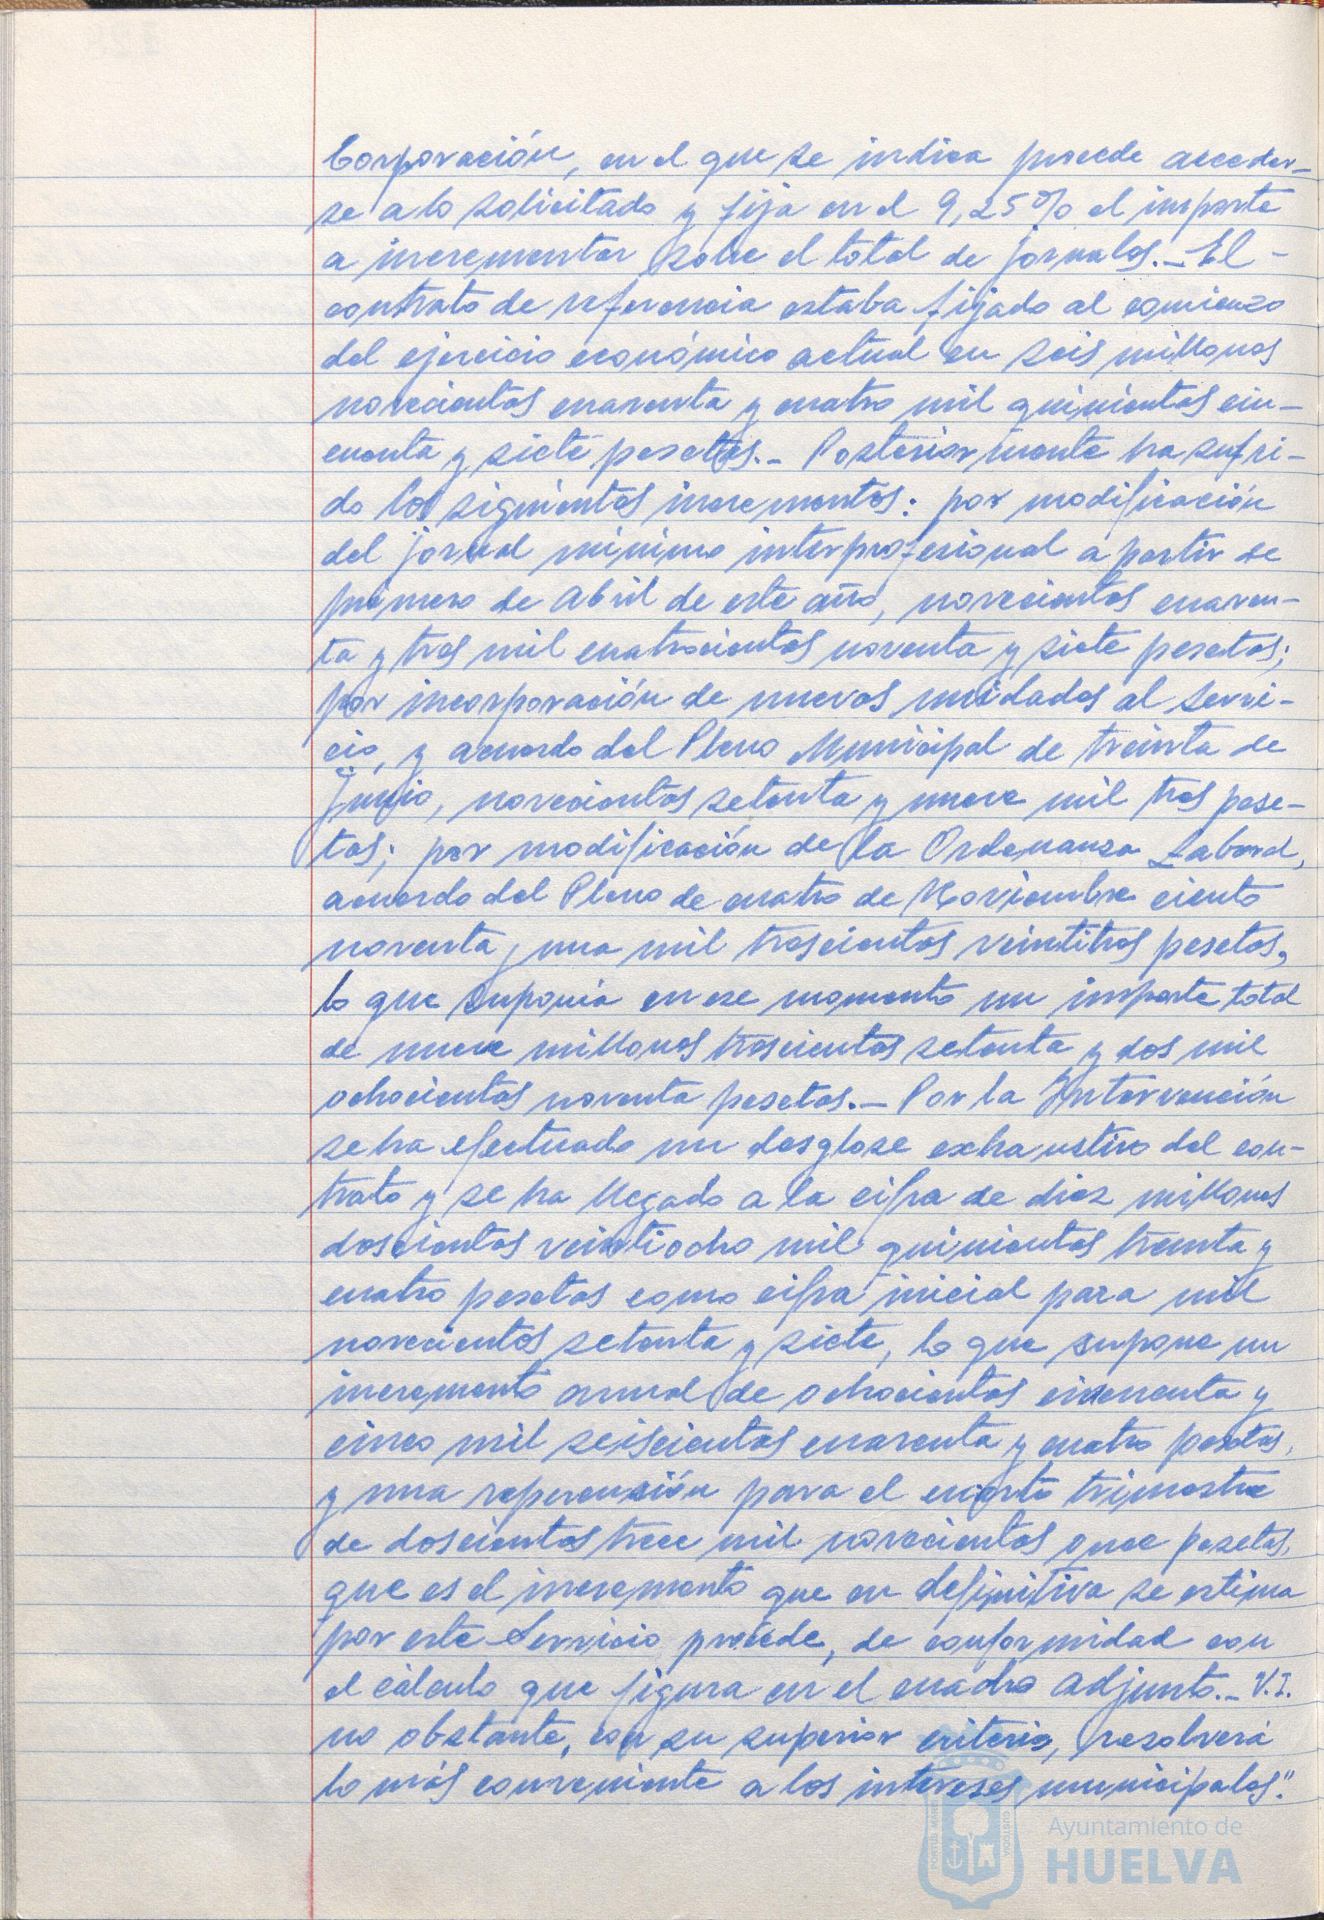 Corporación, en el que se indica procede acceder-
se a lo solicitado y fija en el 9,25% el importe
a incrementar sobre el total de jornales.- El -
contrato de referencia estaba fijado al comienzo
del ejercicio económico actual en seis millones
novecientos cuarenta y cuatro mil quinientos cin-
cuenta y siete pesetas.- Posteriormente ha sufri-
do los siguientes incrementos: por modificación
del jornal mínimo interprofesional a partir de
primero de Abril de este año, novecientos cuaren-
ta y tres mil cuatrocientos noventa y siete pesetas;
por incorporación de nuevas unidades al Servi-
cio, y acuerdo del Pleno Municipal de treinta de
Junio, novecientos setenta y nueve mil tres pese-
tas; por modificación de la Ordenanza Laboral,
acuerdo del Pleno de cuatro de Noviembre ciento
noventa y una mil trescientos veintitres pesetas,
lo que suponía en ese momento un importe total
de nueve millones trescientos setenta y dos mil
ochocientos noventa pesetas.- Por la Intervención
se ha efectuado un desglose exhaustivo del con-
trato y se ha llegado a la cifra de diez millones
doscientos veintiocho mil quinientos treinta y
cuatro pesetas como cifra inicial para mil
novecientos setenta y siete, lo que supone un
incremento anual de ochocientos cincuenta y
cinco mil seiscientos cuarenta y cuatro pesetas,
y una repercusión para el cuarto trimestre
de doscientos trece mil novecientos once pesetas,
que es el incremento que en definitiva se estima
por este Servicio procede, de conformidad con
el cálculo que figura en el cuadro adjunto.- V.I.
no obstante, con su superior criterio, resolverá
lo más conveniente a los intereses municipales."
Ayuntamiento de
HUELVA